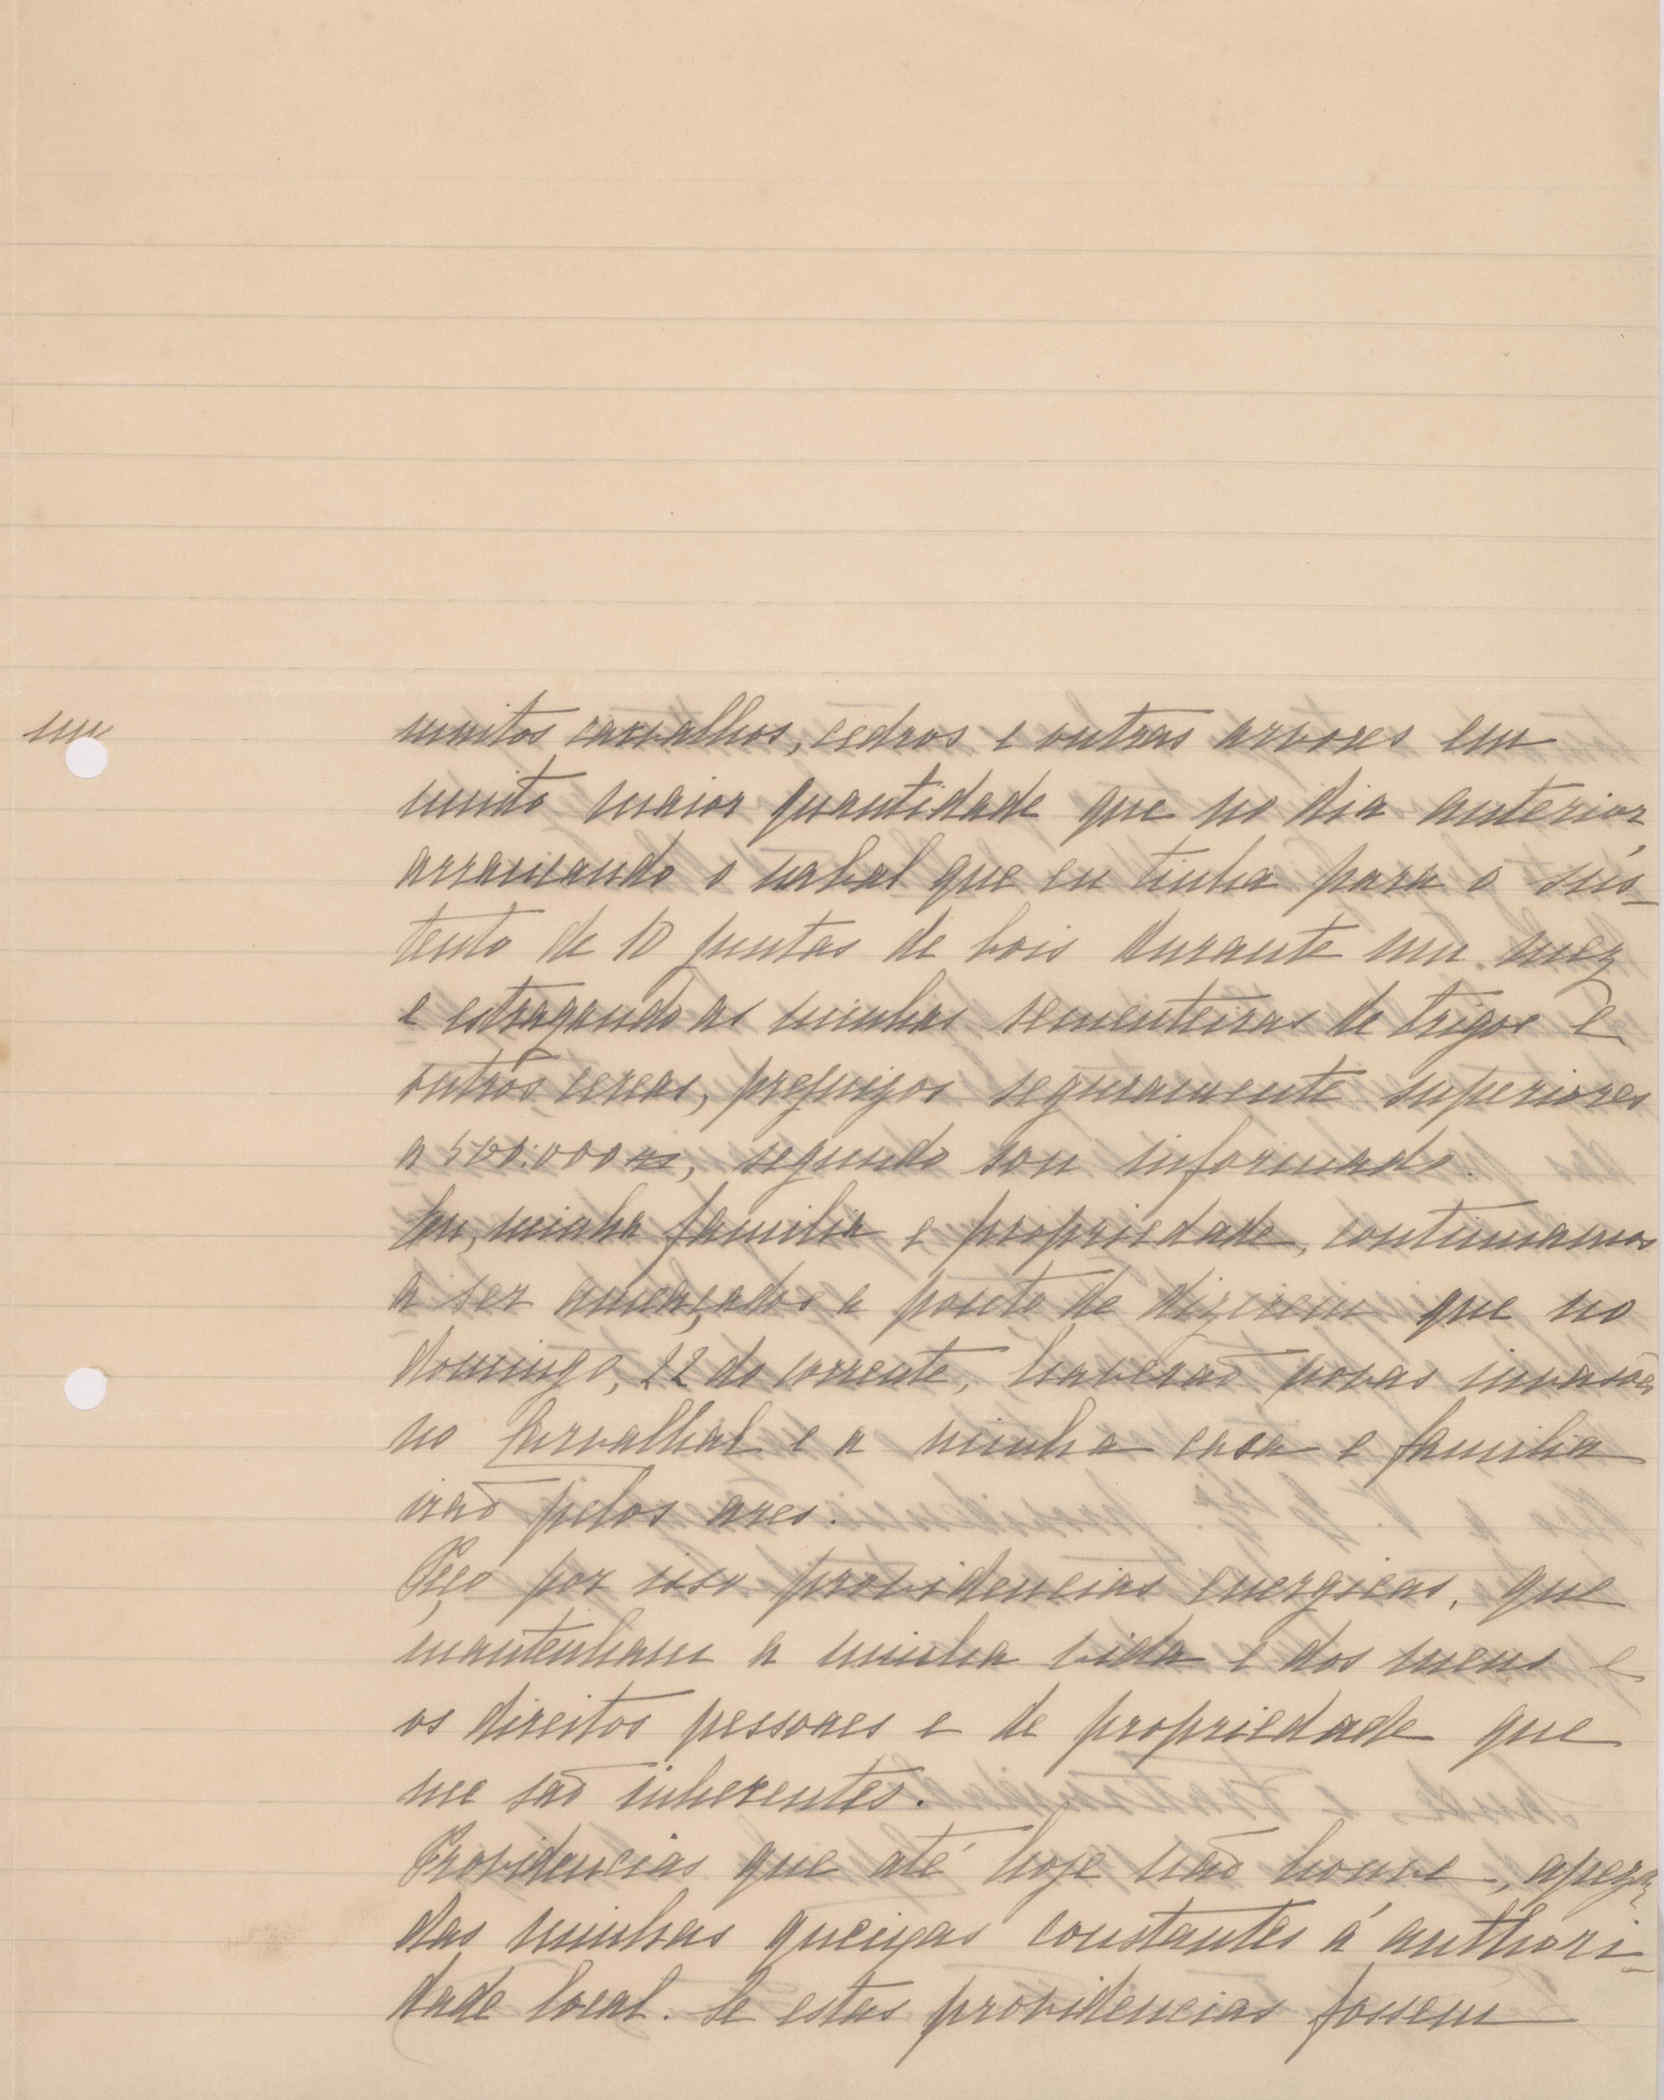 muitos carvalhos, cedros e outras arvores em
muito maior quantidade que no dia anterior
arrancando o nabal que eu tinha para o sus-
tento de 10 juntas de bois durante um mez
e estragando as minhas sementeiras de trigos e
outros cereas, prejuizos seguramente superiores
a 500:000 rs, segundo sou informado.
Eu, minha familia e propriedade, continuamos
a ser ameaçados a ponto de dizerem que no
domingo, 22 do corrente, haverão novas invasões
no Carvalhal e a minha casa e familia
irão pelos ares.
Peço por isso providencias energicas, que
mantenham a minha vida e dos meus e
os direitos pessoaes e de propriedade que
me são inherentes.
Providencias que até hoje não houve, apezar
das minhas queixas constantes á authori-
dade local. Se estas providencias fossem